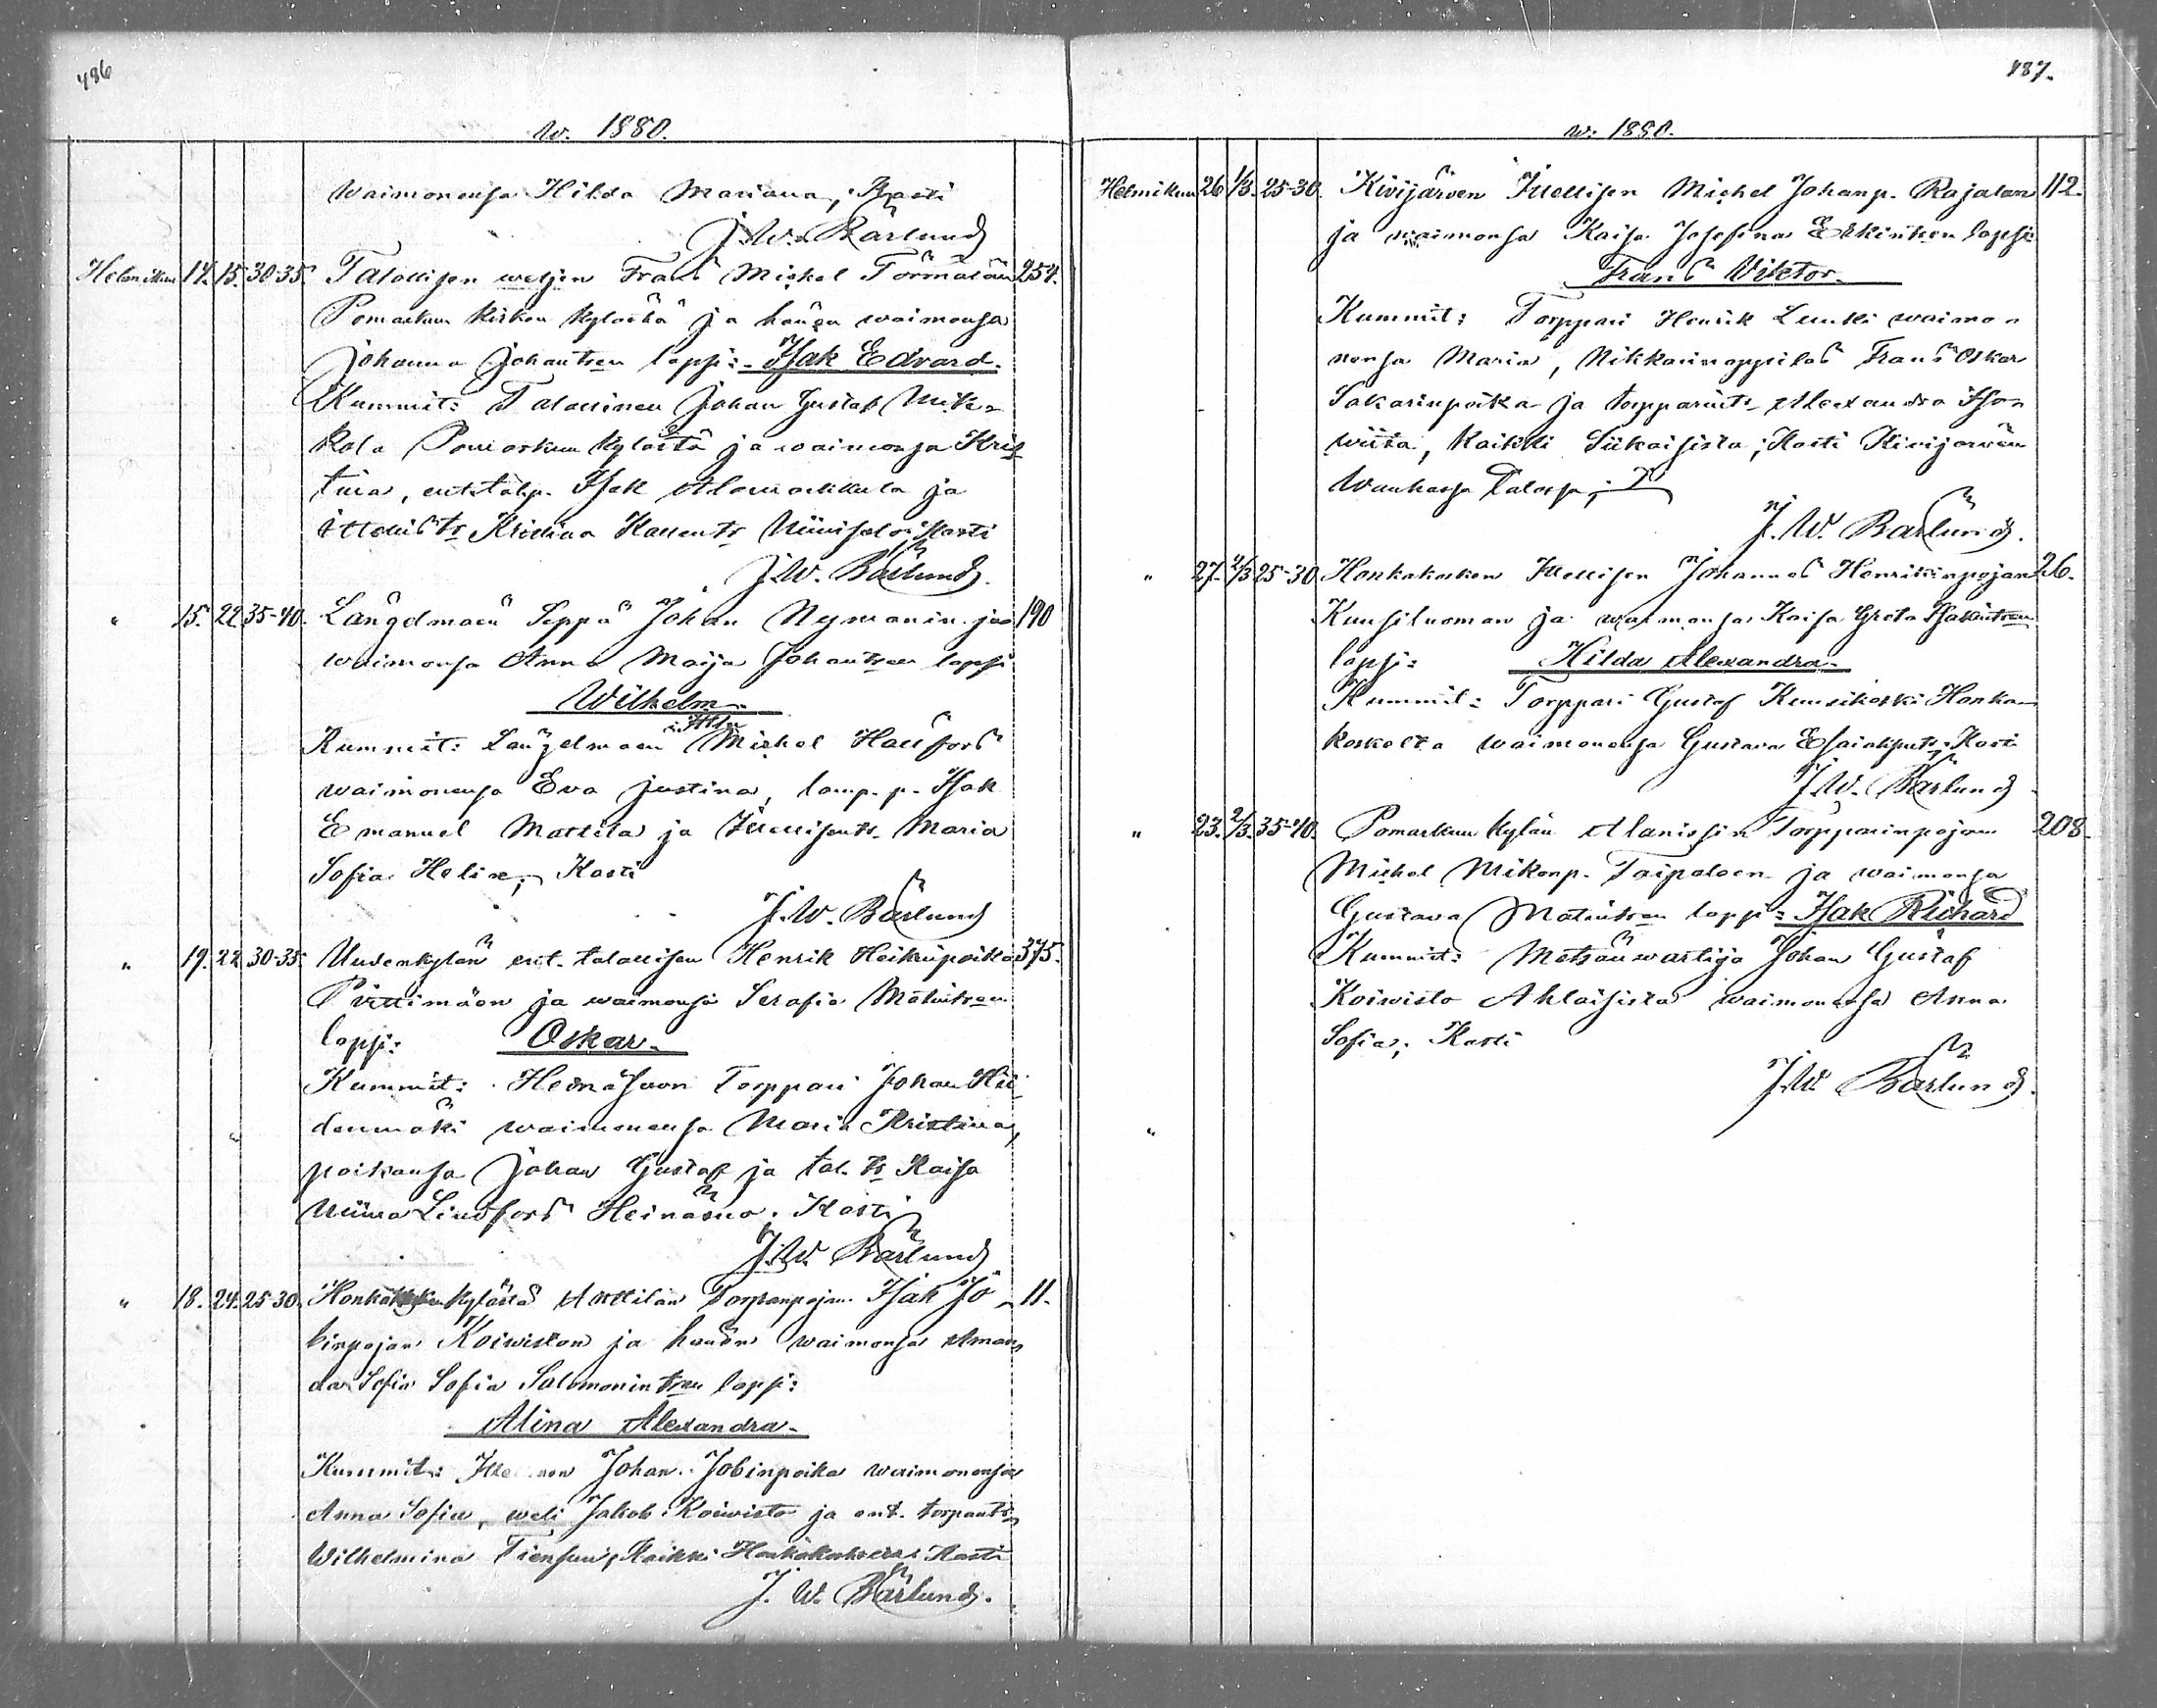 486
w. 1880.
waimonensa Hilda Mariana, Kasti
J. W. Bärlund
Helmikuu 14. 15. 30-35. Talollisen weljen Frans Michel Törmälän 254.
Pomarkun kirkon kylästä ja hänen waimonsa
Johanna Johantren lapsi: Isak Edvard.
Kummit: Talollinen Johan Gustaf Nik-
kola Pomarkun kylästä ja waimonsa Kris-
tina, ent. talp. Isak Alamarkkula ja
Ittellis tr Kristina Kallentr Niinisalo; Kasti
J. W. Bärlund.
" 15. 22. 35-40. Längelmäen Seppä Johan Nymanin ja 190
waimonsa Anna Maija Johantren lapsi
Wilhelm.
Kummit: Längelmäen Itln Michel Hallfors
waimonensa Eva Justina, lamp. p. Isak
Emanuel Mattila ja Itsellisentr. Maria
Sofia Helin; Kasti
J. W. Bärlund
" 19. 22. 30-35. Uudenkylän ent. talollisen Henrik Heikinpoika 375.
Pirttimäen ja waimonsa Serafia Matintren
lapsi: Oskar.
Kummit: Heinäsuon Torppari Johan Hii-
denmäki waimonensa Maria Kristina,
poikansa Johan Gustaf ja tal. tr Kaisa
Miina Lindfors Heinäsuo. Kasti
J. W. Bärlund
" 18. 24. 25-30. kylästä Anttilan Torpanpojan Isak Jo- 11.
binpojan Koiwiston ja hänen waimonsa Aman-
da Sofia Sofia Salomonintren lapsi:
Alina Alexandra.
Kummit: Johan Jobinpoika waimonensa
Anna Sofia, weli Jakob Koiwisto ja ent. torpantr
Wilhelmina Tiensuu, Kaikki Honkakoskella; Kasti
J. W. Bärlund.
487.
w. 1880.
Helmikuu 26 1/3. 25-30. Kivijärven Itsellisen Michel Johanp. Rajalan 112.
ja waimonsa Kaisa Josefina Erkintren lapsi
Frans Viktor.
Kummit: Torppari Henrik Luuki waimo-
nensa Maria, Nikkarinoppilas Frans Oskar
Sakarinpoika ja torpparintr. Alexandra Iso-
wiita, Kaikki Siikaisista; Kasti Kivijärwen
Wanhassa Talossa;
J. W. Bärlund.
" 27. 2/3 25-30. Honkakosken Itsellisen Johannes Henrikinpojan 26.
Kuusiluoman ja waimonsa Kaisa Greta Isakintren
lapsi: Hilda Alexandra.
Kummit: Torppari Gustaf Kuusikoski Honka-
koskelta waimonensa Gustava Esaiaksentr; Kasti
J. W. Bärlund
" 23. 2/3. 35-40. Pomarkun kylän Alanissin Torpparinpojan 208.
Michel Mikonp. Taipaleen ja waimonsa
Gustava Matintren lapsi: Isak Richard
Kummit: Metsänwartija Johan Gustaf
Koiwisto Ahlaisista waimonensa Anna
Sofia; Kasti
J. W. Bärlund.
"